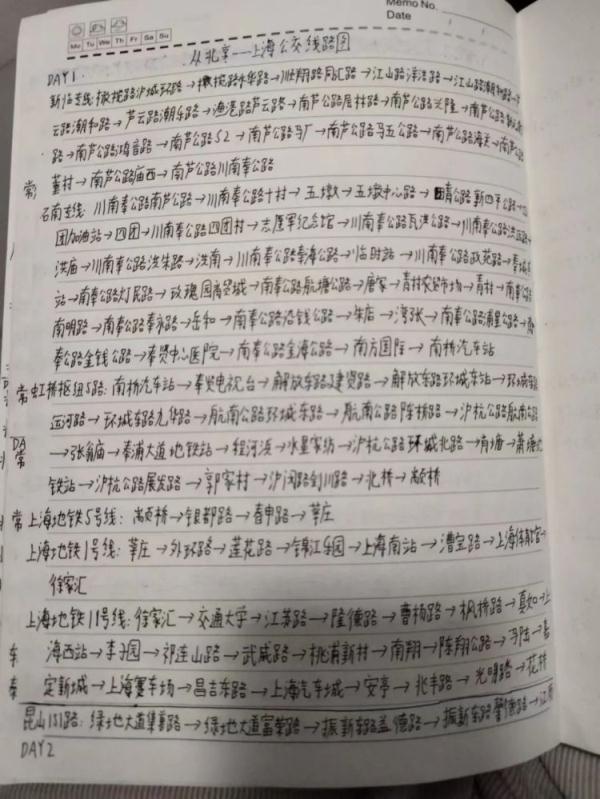 Memo No.
Date
Mo Tu We Th Fr Sa Su
从北京——上海公交线路图
DAY1.
新临支线:橄榄路沪城环路→橄榄路水华路→壮翔路同汇路→江山路洋浩路→江山路潮和路→
云路潮和路→芦云路潮乐路→渔港路芦云路→南芦公路居林路→南芦公路兴隆→南芦公路
路→南芦公路鸿音路→南芦公路S2→南芦公路马厂→南芦公路马五公路→南芦公路海关→南芦公路
常 董村→南芦公路庙西→南芦公路川南奉公路
石南支线:川南奉公路南芦公路→川南奉公路十村→五墩→五墩中心路→ 公路新四平公路→
团加油站→四团→川南奉公路四团村→志愿军纪念馆→川南奉公路瓦洪公路→川南奉公路
洪庙→川南奉公路洪朱路→洪南→川南奉公路奉海公路→临时站→川南奉公路政苑路→奉城
站→南奉公路灯民路→玫瑰园商贸城→南奉公路航塘公路→唐家→青村农贸市场→青村→南奉公路
南明路→南奉公路奉永路→岳和→南奉公路沿钱公路→朱店→湾张→南奉公路浦星公路→南
奉公路金钱公路→奉贤中心医院→南奉公路金海公路→南方国际→南桥汽车站
常 虹桥枢纽5路:南桥汽车站→奉贤电视台→解放东路建贤路→解放东路环城东路→环城东路
运河路→环城东路九华路→航南公路环城东路→航南公路陈桥路→沪杭公路航南公路
DA
常 →张翁庙→奉浦大道地铁站→程河浜→水星家纺→沪杭公路环城北路→肖塘→萧塘
铁站→沪杭公路展发路→郭家村→沪闵路剑川路→北桥→颛桥
常 上海地铁5号线:颛桥→银都路→春申路→莘庄
上海地铁1号线:莘庄→外环路→莲花路→锦江乐园→上海南站→漕宝路→上海体育馆→
徐家汇
上海地铁11号线:徐家汇→交通大学→江苏路→隆德路→曹杨路→枫桥路→真如→上
车 海西站→李子园→祁连山路→武威路→桃浦新村→南翔→陈翔公路→马陆→嘉
奉 定新城→上海赛车场→昌吉东路→上海汽车城→安亭→兆丰路→光明路→花桥
昆山151路:绿地大道集善路→绿地大道富荣路→振新东路益德路→振新东路 德路→江
DAY2